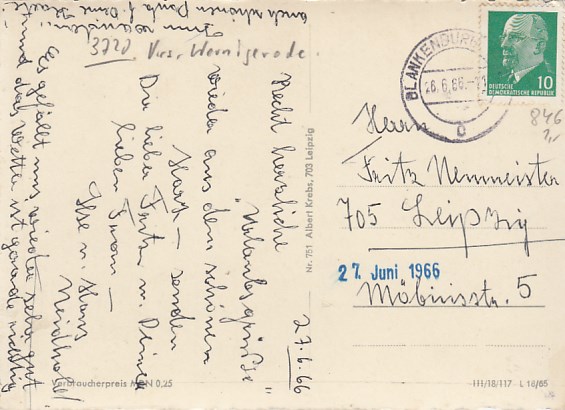 auch schönen Dank f. Deine Karte!
zum wandern!
3720 Krs. Wernigerode.
27.6.66
Recht herzliche
"Urlaubsgrüße"
wieder aus dem schönen
Harz — senden
Dir lieber Fritz u. Deiner
lieben Frau —
Ilse u. Hans
Es gefällt uns wieder sehr gut
und das Wetter ist gerade richtig
Verbraucherpreis MDN 0,25
Nr. 751 Albert Krebs, 703 Leipzig
BLANKENBURG
26.6.66
b
DEUTSCHE
DEMOKRATISCHE REPUBLIK
10
846
Herrn
Fritz Nemmeister
705 Leipzig
27. Juni 1966
Möbiusstr. 5
III/18/117 L 18/65